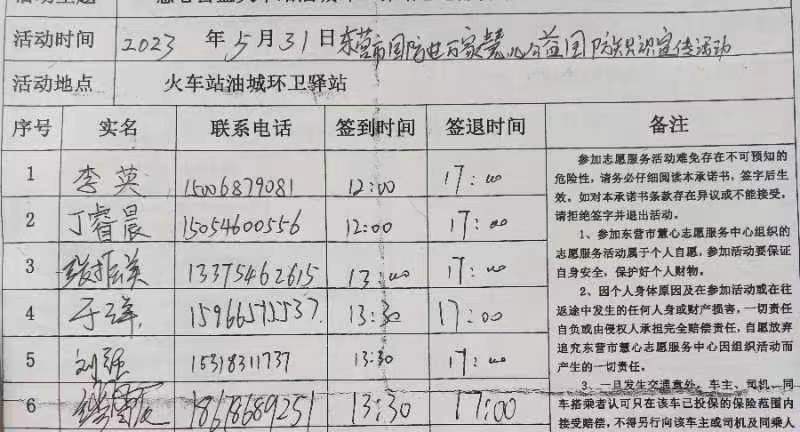 活动时间 2023 年 5 月 31 日 东营市国防进万家 公益国防知识宣传活动
活动地点 火车站油城环卫驿站
序号 实名 联系电话 签到时间 签退时间 备注
1 李英 15006879081 12:00 17:00
2 丁睿晨 15054600556 12:00 17:00
3 13375462615 13:00 17:00
4 于洋 15966515537 13:30 17:00
5 刘强 15318311737 13:30 17:00
6 18678689251 13:30 17:00
参加志愿服务活动难免存在不可预知的
危险性，请务必仔细阅读本承诺书，签字后生
效。如对本承诺书条款存在异议或不能接受，
请拒绝签字并退出活动。
1、参加东营市慧心志愿服务中心组织的
志愿服务活动属于个人自愿，参加活动要保证
自身安全，保护好个人财物。
2、因个人身体原因及在参加活动或在往
返途中发生的任何人身或财产损害，一切责任
自负或由侵权人承担完全赔偿责任，自愿放弃
追究东营市慧心志愿服务中心因组织活动而
产生的一切责任。
3、一旦发生交通意外，车主、司机、同
车搭乘者认可只在该车已投保的保险范围内
接受赔偿，不得另行向该车主或司机及同乘人